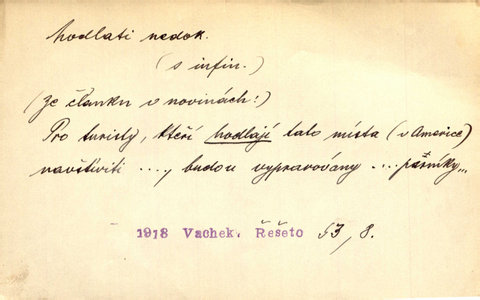 hodlati nedok.
(s infin.)
(Ze článku v novinách:)
Pro turisty, kteří hodlají tato místa (v Americe)
navštíviti ...., budou vypravovány ....
1918 Vachek. Řešeto 53/8.